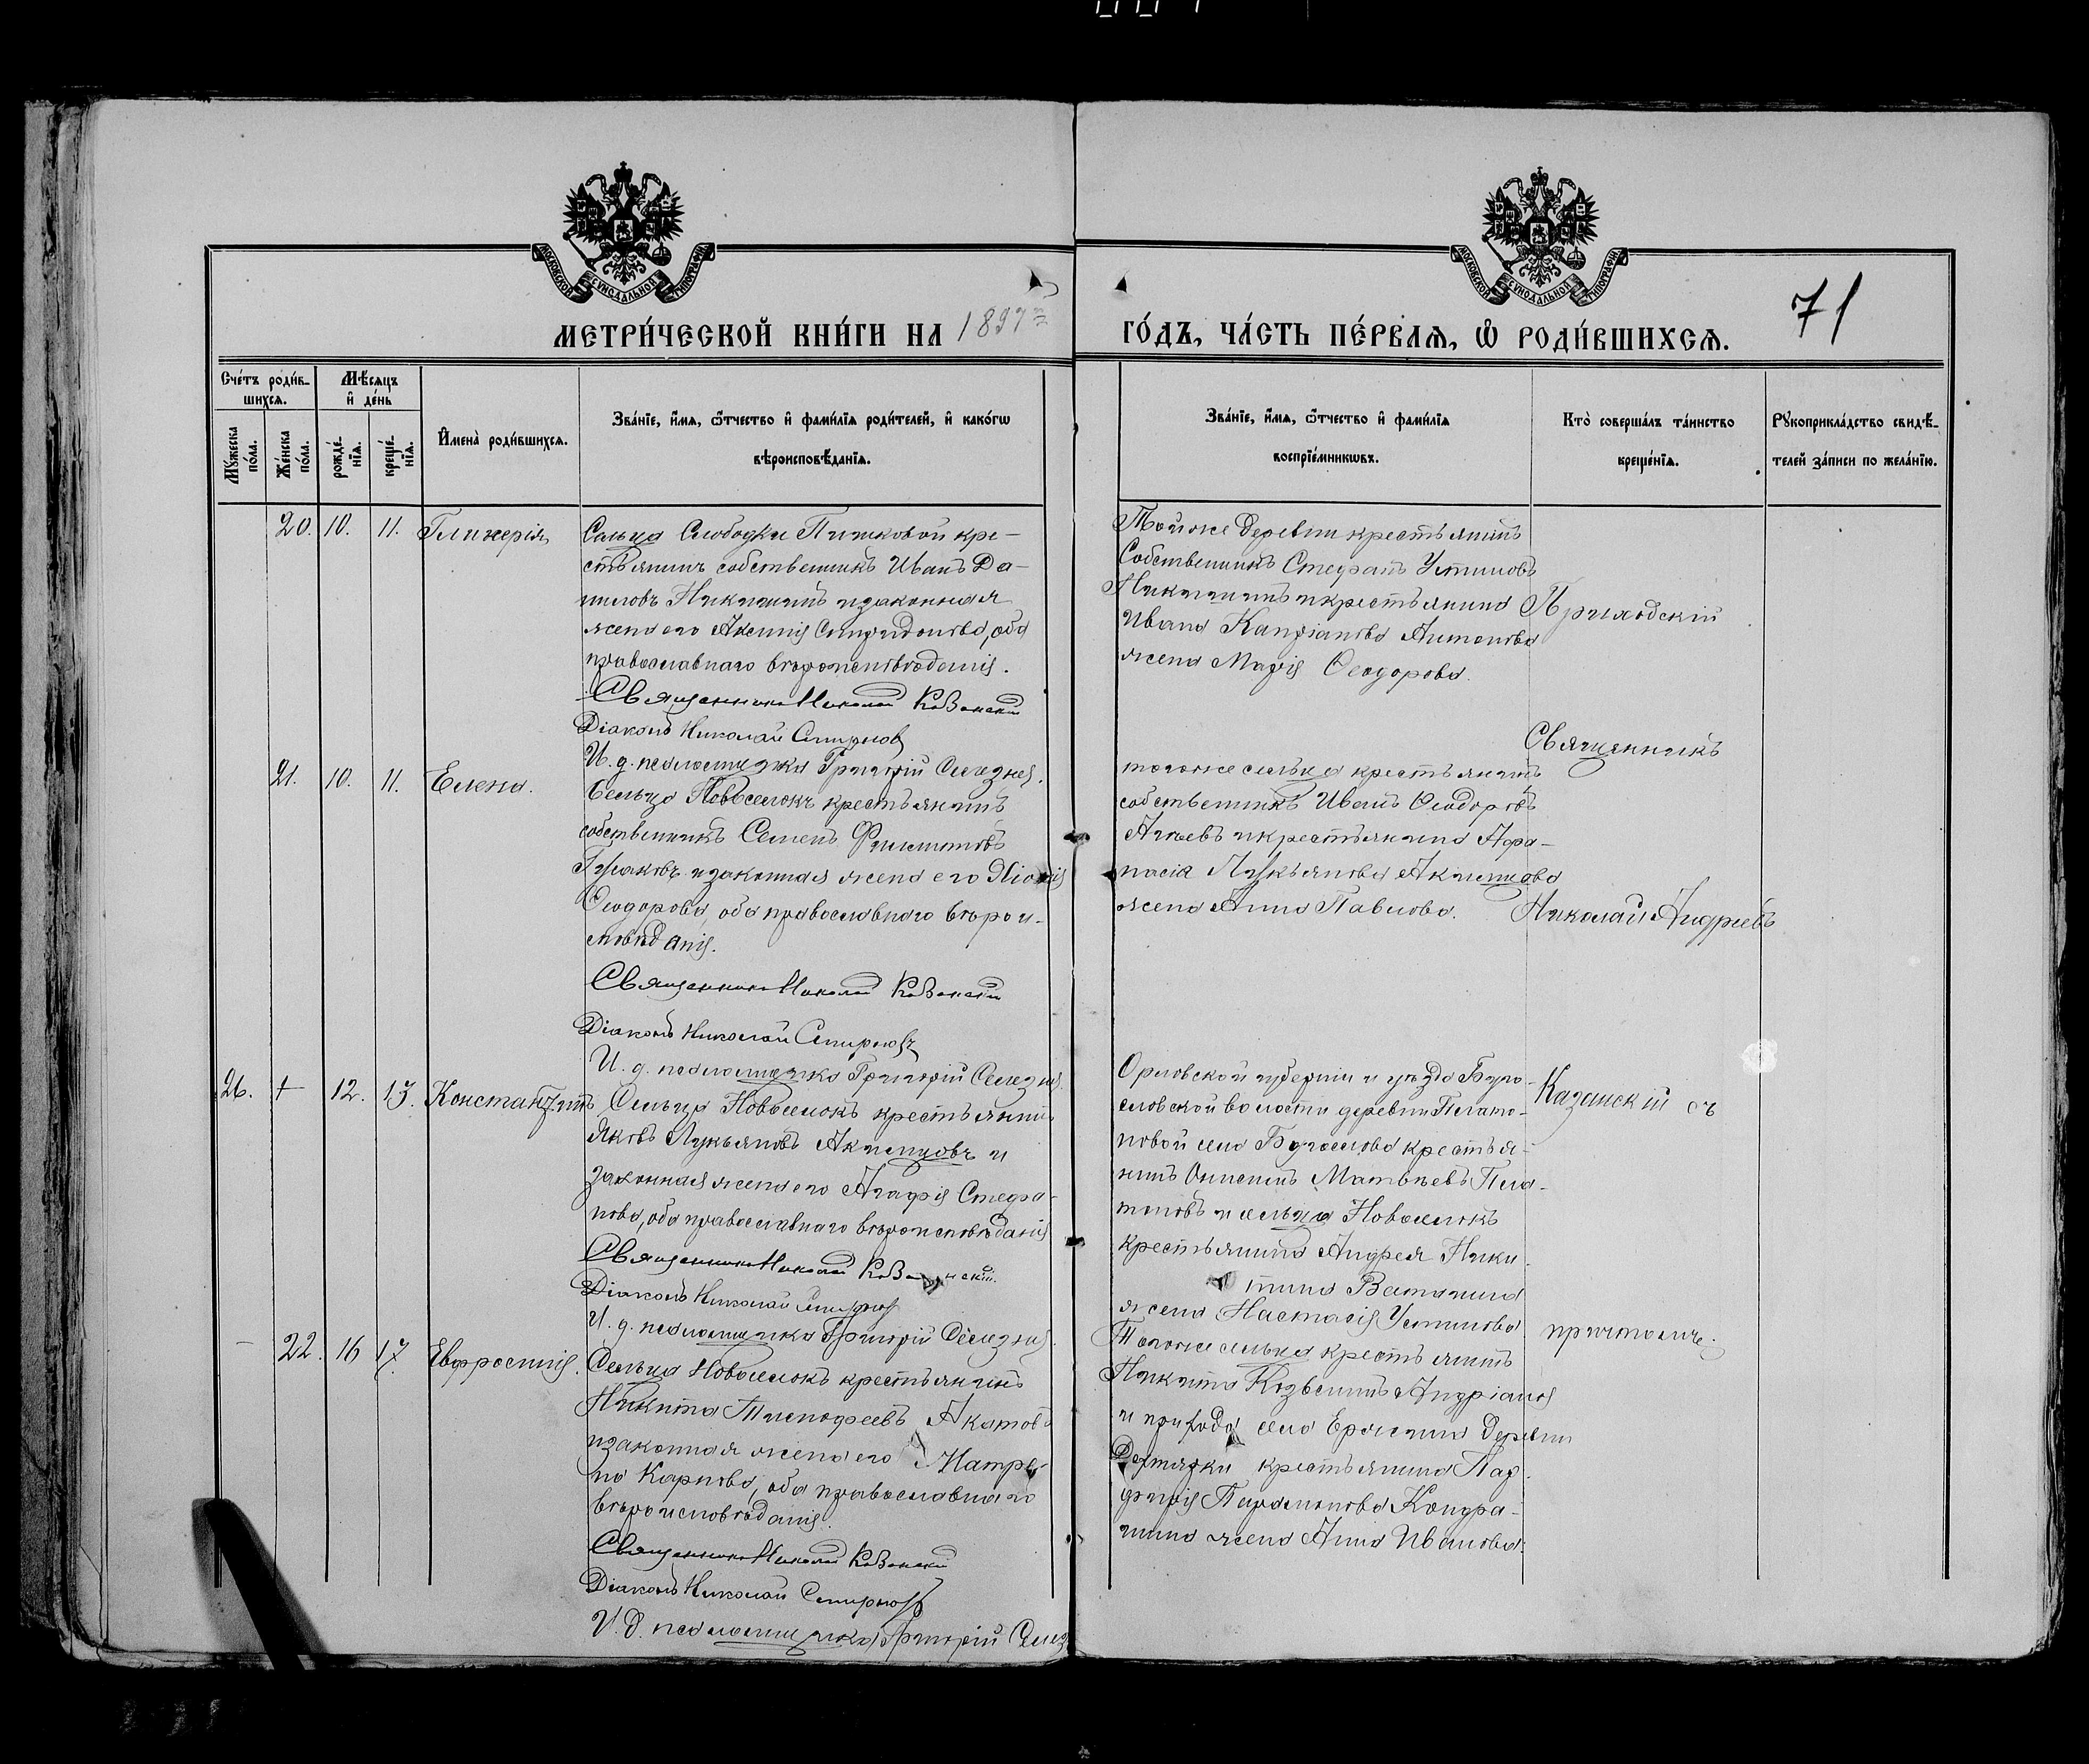 МОСКОВСКОЙ СУНОДАЛЬНОЙ ТИПОГРАФІИ
МОСКОВСКОЙ СУНОДАЛЬНОЙ ТИПОГРАФІИ
71
МЕТРИ́ЧЕСКОЙ КНИ́ГИ НА 1897й
ГО́ДЪ, ЧА́СТЬ ПЕ́РВАѦ, Ѿ РОДИ́ВШИХСѦ.
Сче́тъ роди́в-
шихсѧ.
Мѣ́сѧцъ
и҆ де́нь
Мꙋ́жеска
по́ла.
Же́нска
по́ла.
рожде́-
нїѧ.
креще́-
нїѧ.
И҆мена̀ роди́вшихсѧ.
Зва́нїе, и҆́мѧ, ѻ҆́тчество и҆ фами́лїѧ роди́телей, и҆ како́гѡ
вѣроисповѣ́данїѧ.
Зва́нїе, и҆́мѧ, ѻ҆́тчество и҆ фами́лїѧ
воспрїе́мникѡвъ.
Кто̀ соверша́лъ та́инство
креще́нїѧ.
Рꙋкоприкла́дство свидѣ́-
телей за́писи по жела́нїю.
20. 10. 11. Гликерія
Сельца Слободки Пишковой кре-
стьянинъ собственникъ Иванъ Да-
ниловъ Никишинъ и законная
жена его Аксинія Спиридонова, оба
православнаго вѣроисповѣданія.
Священникъ Николай Казанскій
Діаконъ Николай Смирновъ
И. д. псаломщика Григорій Селезнев.
Тойже деревни крестьянинъ
Собственникъ Стефанъ Устиновъ
Никишинъ и крестьянина
Ивана Капріанова Антонова
жена Марія Ѳеодорова.
Приходскій
Священникъ
21. 10. 11. Елена.
Сельца Новоселокъ крестьянинъ
собственникъ Семенъ Филиповъ
и законная жена его
Ѳеодорова, оба православнаго вѣрои-
сповѣданія.
Священникъ Николай Казанскій
Діаконъ Николай Смирновъ
И. д. псаломщика Григорій Селезнев.
тогоже сельца крестьянинъ
собственникъ Иванъ Ѳеодоровъ
Агѣевъ и крестьянина Афа-
насія Лукьянова Акимцова
жена Анна Павлова.
Николай Андреевъ
26. + 12. 13. Константинъ
Сельца Новоселокъ крестьянинъ
Яковъ Лукьяновъ Акимцовъ и
законная жена его Агафія Стефа-
нова, оба православнаго вѣроисповѣданія
Священникъ Николай Казанскій.
Діаконъ Николай Смирнов
И. д. псаломщика Григорій Селезнев.
Орловской губерніи и уѣзда Бого-
словской волости деревни Плато-
новой села Богослова крестья-
нинъ Матвѣевъ Пла-
тоновъ и сельца Новоселокъ
крестьянина Андрея Ники-
тина
жена Настасія Устинова
Казанскій съ
причтомъ.
- 22. 16 17. Евфросинія.
Сельца Новоселокъ крестьянинъ
Никита Тимофеевъ Акатовъ
и законная жена его Матре-
на Карпова, оба православнаго
вѣроисповѣданія.
Священникъ Николай Казанскій
Діаконъ Николай Смирновъ
И. д. псаломщика Григорій Селез
Тогоже сельца крестьянинъ
Никита Андріанов
и прихода села деревни
крестьянина Пар-
фирія Парамонова Кондра-
шина жена Анна Иванова.